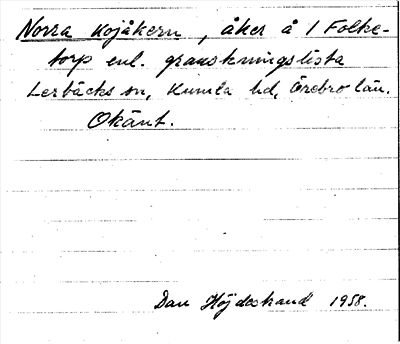 Norra Kojåkern, åker å 1 Folke-
torp enl. granskningslista
Lerbäcks sn, Kumla hd, Örebro län.
Okänt.
Dan Höjdestrand 1958.